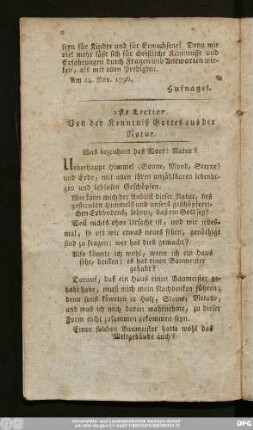 seyn für Kinder und für Erwachsene! Denn wie
viel mehr läßt sich für christliche Kenntnisse und
Erfahrungen durch Fragen und Antworten wir-
ken, als mit allen Predigten.
Am 24. Nov. 1796.
Hufnagel.
1ste Lection.
Von der Kenntniß Gottes aus der
Natur.
Was bezeichnet das Wort: Natur?
Ueberhaupt Himmel (Sonne, Mond, Sterne)
und Erde, mit allen ihren unzählbaren lebendi-
gen und leblosen Geschöpfen.
Wie kann mich der Anblick dieser Natur, des
gestirnten Himmels und unsers geschöpfrei-
chen Erdbodens, lehren, daß ein Gott sey?
Weil nichts ohne Ursache ist, und wir jedes-
mal, so oft wir etwas neues sehen, genöthigt
sind zu fragen: wer hat dies gemacht?
Also könnte ich wohl, wenn ich ein Haus
sehe, denken: es hat einen Baumeister
gehabt?
Darauf, daß ein Haus einen Baumeister ge-
habt habe, muß mich mein Nachdenken führen;
denn sonst könnten ja Holz, Steine, Metalle,
und was ich noch daran wahrnehme, zu dieser
Form nicht zusammen gekommen seyn.
Einen solchen Baumeister hatte wohl das
Weltgebäude auch?
DFG